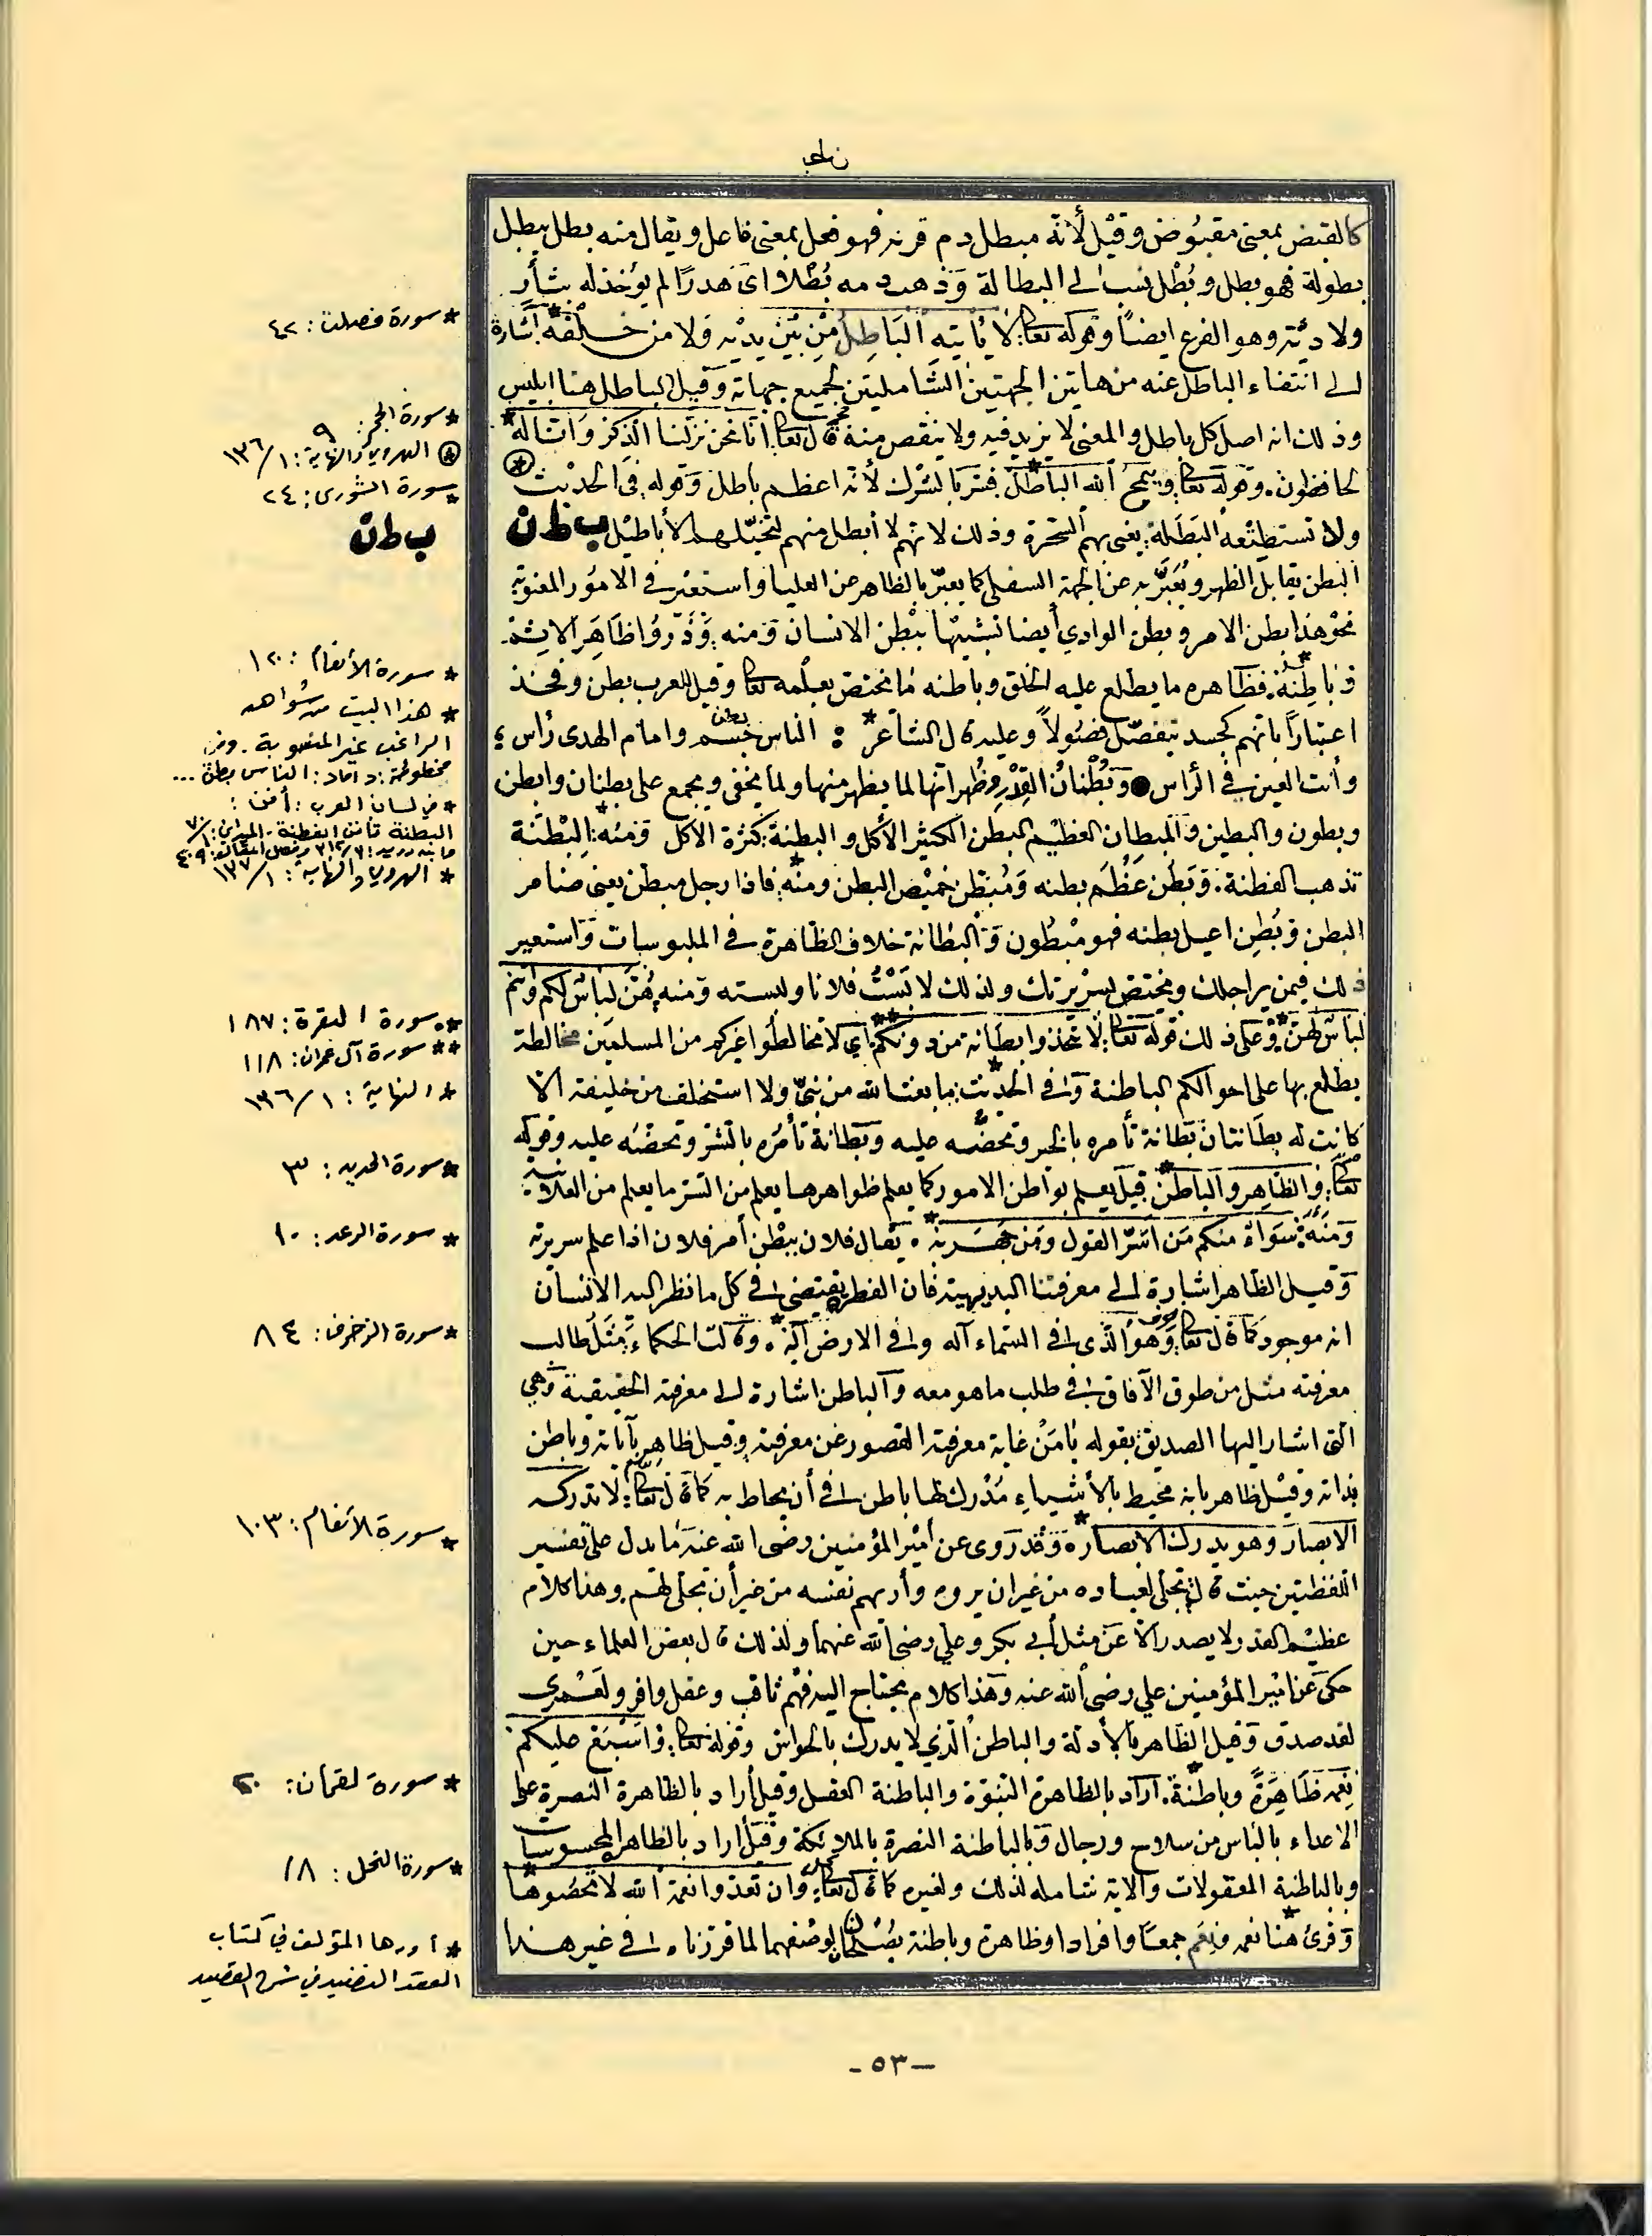 كالقبض بمعنى مقبوض وقيل لأنه مبطل دم قرنه فهو فعل بمعنى فاعل ويقال منه بطل يبطل
بطولة فهو بطل وبطل نسب الى البطالة وذهب دمه بطلا اى هدرا لم يؤخذ له بثأر
ولا دية وهو الفرع ايضا وقوله تعالى لا يأتيه الباطل من بين يديه ولا من خلفه اشارة
الى انتفاء الباطل عنه من هاتين الجهتين الشاملتين لجميع جهاته وقيل الباطل هنا ابليس
وذلك انه اصل كل باطل والمعنى لا يزيد فيه ولا ينقص منه قال تعالى انا نحن نزلنا الذكر وانا له
لحافظون. وقوله تعالى ويمح الله الباطل فسر بالشرك لأنه اعظم باطل وقوله في الحديث
ولا تستطيعه البطلة يعنى بهم السحرة وذلك لانهم لا أبطل منهم لتخيلهم الأباطيل ب ط ن
البطن يقابل الظهر ويعبر به عن الجهة السفلى كما يعبر بالظاهر عن العليا واستعير في الامور المعنوية
نحو هذا بطن الامر وبطن الوادي أيضا تشبيها ببطن الانسان ومنه وذروا ظاهر الاثم
وباطنه فظاهره ما يطلع عليه الخلق وباطنه ما يختص بعلمه تعالى وقيل للعرب بطن وفخذ
اعتبارا بانهم كجسد تفصل فصولا وعليه قال الشاعر * : الناس جسم وامام الهدى رأس ؛
بطن
وأنت العين في الرأس وبطنان القدر وظهرانها لما يظهر منها ولما يخفى ويجمع على بطنان وابطن
وبطون والبطين والمبطان العظيم البطن الكثير الأكل والبطنة كثرة الأكل ومنه البطنة
تذهب الفطنة. وبطن عظم بطنه ومبطن خميص البطن ومنه فاذا رجل مبطن يعنى ضامر
البطن وبطن اعيل بطنه فهو مبطون والبطانة خلاف الظاهرة في الملبوسات واستعير
ذلك فيمن يراجلك ويختص بسريرتك ولذلك لابست فلانا ولبسته ومنه هن لباس لكم وانتم
لباس لهن وعلى ذلك قوله تعالى لا تتخذوا بطانة من دونكم أي لا تخالطوا غيركم من المسلمين مخالطة
يطلع بها على احوالكم الباطنة وفي الحديث ما بعث الله من نبي ولا استخلف من خليفة الا
كانت له بطانتان بطانة تأمره بالخير وتحضه عليه وبطانة تأمره بالشر وتحضه عليه وقوله
تعالى والظاهر والباطن قيل يعلم بواطن الامور كما يعلم ظواهرها يعلم من السر ما يعلم من العلانية
ومنه سواء منكم من اسر القول ومن جهر به . يقال فلان يبطن أمر فلان اذا علم سريرته
وقيل الظاهر اشارة الى معرفتنا البديهية فان الفطرة تقتضى في كل ما نظر اليه الانسان
انه موجود كما قال تعالى وهو الذى في السماء اله وفي الارض اله . وقالت الحكماء مثل طالب
معرفته مثل من طوق الآفاق في طلب ما هو معه والباطن اشارة الى معرفته الحقيقية وهي
التى اشار اليها الصديق بقوله يا من غاية معرفته القصور عن معرفته وقيل ظاهر بآياته وباطن
بذاته وقيل ظاهر بانه محيط بالأشياء مدرك لها باطن في أن يحاط به كما قال تعالى لا تدركه
الابصار وهو يدرك الابصار وقد روى عن أمير المؤمنين رضى الله عنه ما يدل على تفسير
اللفظتين حيث قال تجلى لعباده من غير ان يروه وأراهم نفسه من غير أن تجلى لهم وهذا كلام
عظيم القدر لا يصدر الا عن مثل أبي بكر وعلي رضى الله عنهما ولذلك قال بعض العلماء حين
حكى عن امير المؤمنين علي رضى الله عنه وهذا كلام يحتاج اليه فهم ثاقب وعقل وافر ولعمرى
لقد صدق وقيل الظاهر بالأدلة والباطن الذي لا يدرك بالحواس وقوله تعالى واسبغ عليكم
نعمه ظاهرة وباطنة. اراد بالظاهرة النبوة والباطنة العقل وقيل أراد بالظاهرة النصرة على
الاعداء بالناس من سلاح ورجال وبالباطنة النصرة بالملائكة وقيل اراد بالظاهر المحسوسات
وبالباطنة المعقولات والآية شاملة لذلك ولغيره كما قال تعالى وان تعدوا نعمة الله لا تحصوها
وقرئ هنا نعمه ونعم جمعا وافرادا وظاهرة وباطنة يصلحان لوصفهما لما قررناه في غير هذا
* سورة فصلت : ٤٢
* سورة الحجر : ٩
* الهروي والنهاية : ١/١٣٦
* سورة الشورى : ٢٤
ب ط ن
* سورة الأنعام : ١٢٠
* هذا البيت من شواهد
الراغب غير المنسوبة . وفي
مخطوطة : د اماد : الناس بطن ...
* في لسان العرب : أفن :
البطنة تأفن الفطنة .
* الهروي والنهاية : ١/١٣٧
* سورة البقرة : ١٨٧
** سورة آل عمران : ١١٨
* النهاية : ١/١٣٦
* سورة الحديد : ٣
* سورة الرعد : ١٠
* سورة الزخرف : ٨٤
* سورة الأنعام : ١٠٣
* سورة لقمان : ٢٠
* سورة النحل : ١٨
* أوردها المؤلف في كتاب
العقد النضيد في شرح القصيد
— ٥٣ —